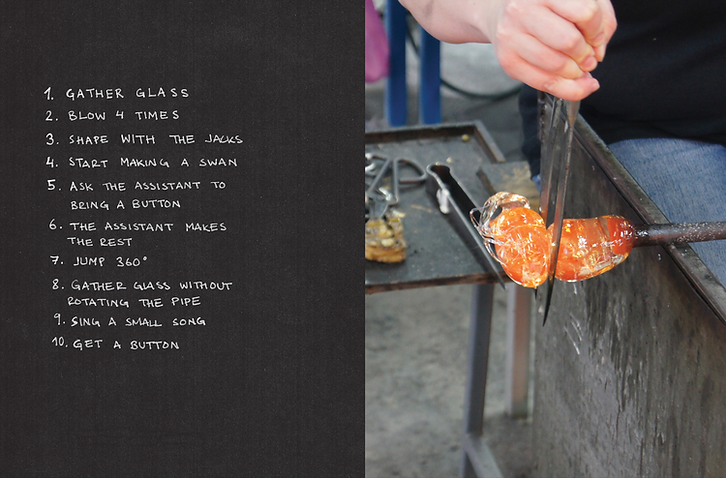 1. GATHER GLASS
2. BLOW 4 TIMES
3. SHAPE WITH THE JACKS
4. START MAKING A SWAN
5. ASK THE ASSISTANT TO
BRING A BUTTON
6. THE ASSISTANT MAKES
THE REST
7. JUMP 360°
8. GATHER GLASS WITHOUT
ROTATING THE PIPE
9. SING A SMALL SONG
10. GET A BUTTON